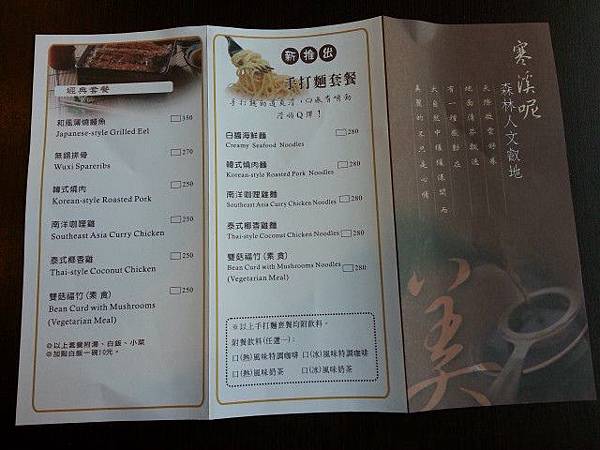 經典套餐
和風蒲燒鰻魚 350
Japanese-style Grilled Eel
無錫排骨 270
Wuxi Spareribs
韓式燒肉 250
Korean-style Roasted Pork
南洋咖哩雞 250
Southeast Asia Curry Chicken
泰式椰香雞 250
Thai-style Coconut Chicken
雙菇福竹(素 食) 250
Bean Curd with Mushrooms
(Vegetarian Meal)
※以上套餐附湯、白飯、小菜
※加點白飯一碗10元。
新推出
手打麵套餐
白醬海鮮麵 280
Creamy Seafood Noodles
韓式燒肉麵 280
Korean-style Roasted Pork Noodles
南洋咖哩雞麵 280
Southeast Asia Curry Chicken Noodles
泰式椰香雞麵 280
Thai-style Coconut Chicken Noodles
雙菇福竹(素 食) 280
Bean Curd with Mushrooms Noodles
(Vegetarian Meal)
※以上手打麵套餐均附飲料。
附餐飲料(任選一):
口(熱)風味特調咖啡 口(冰)風味特調咖啡
口(熱)風味奶茶 口(冰)風味奶茶
寒溪呢
森林人文叡地
美